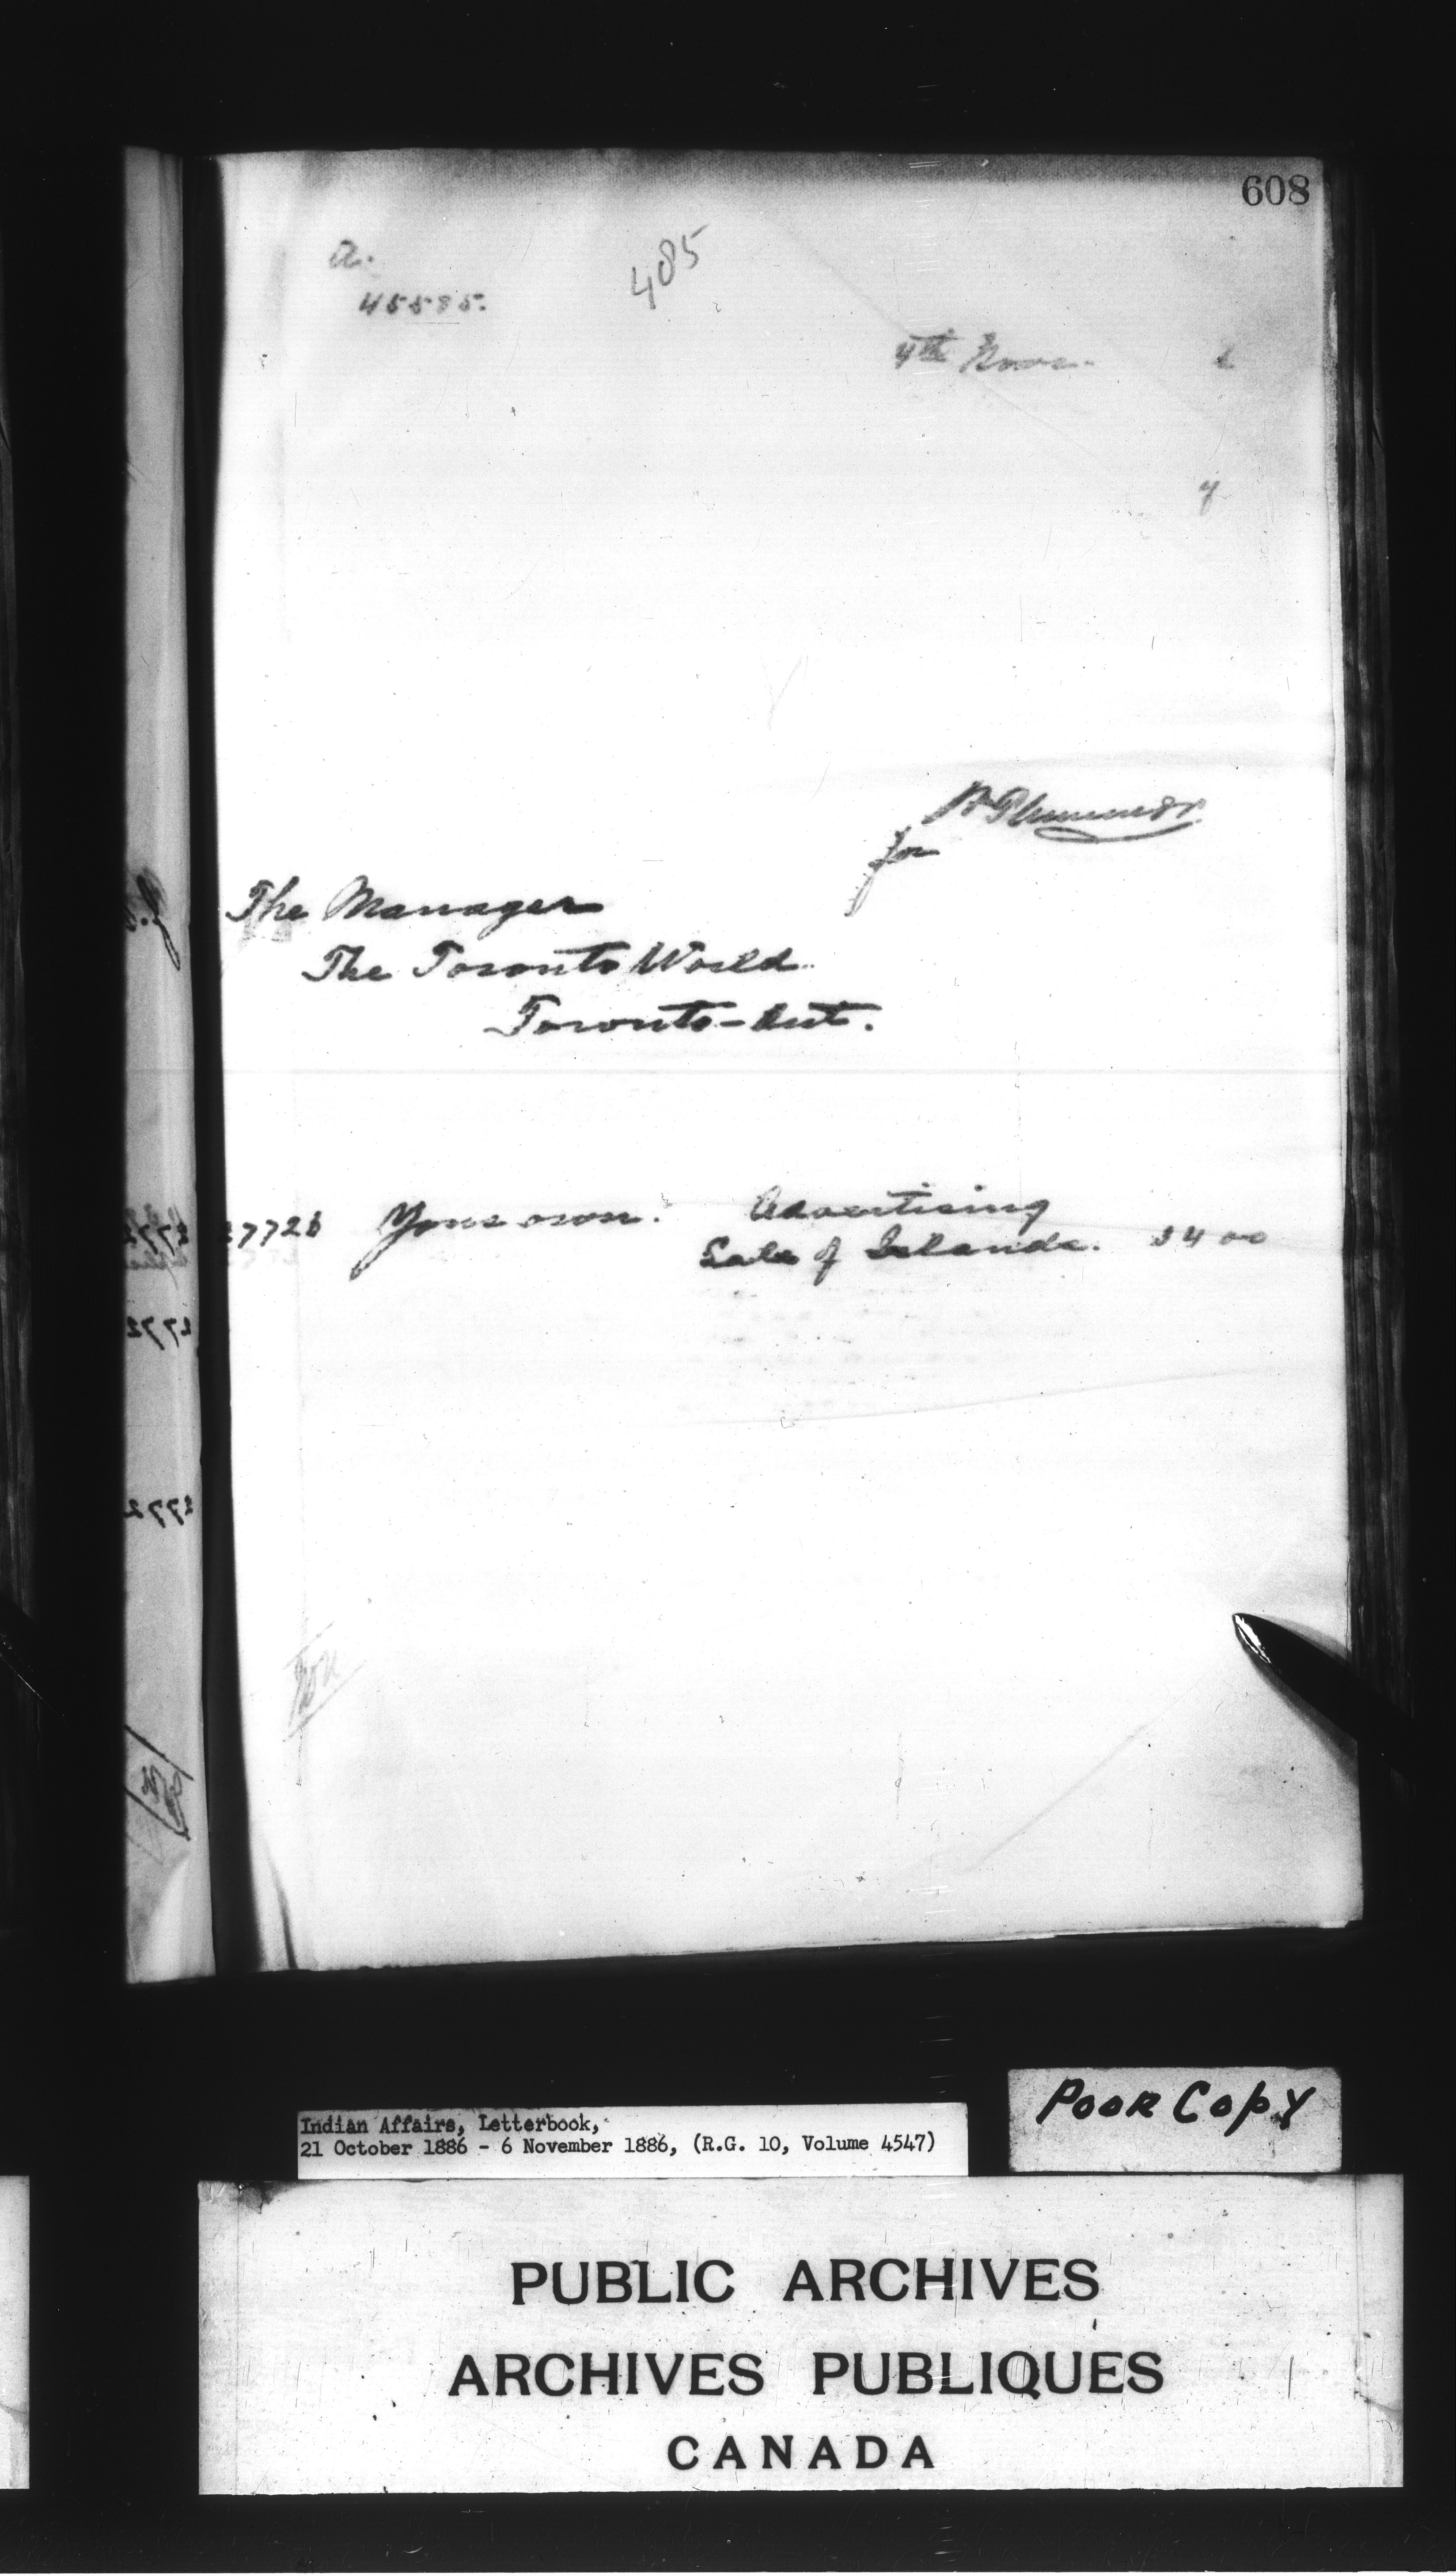 608
a.
485
45585.
4th Novr. 6
7
for
The Manager
The Toronto World
Toronto - Ont.
Advertising
27726 Your own.
Sale of Islands. 34 00
Indian Affairs, Letterbook,
21 October 1886 - 6 November 1886, (R.G. 10, Volume 4547)
POOR COPY
PUBLIC ARCHIVES
ARCHIVES PUBLIQUES
CANADA